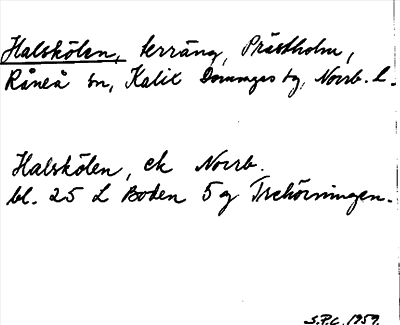 Halskölen, terräng, Prästholm,
Råneå sn, Kalix Domsagas tg, Norrb. l.
Halskölen, ek Norrb.
bl. 25 L Boden 5 g Trehörningen.
S.P.C. 1959.